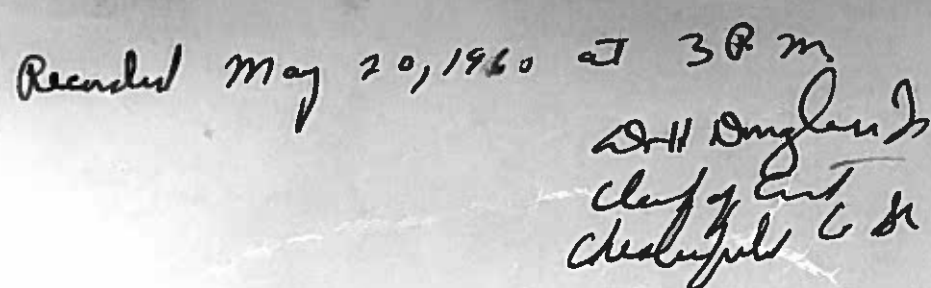 Recorded May 20, 1960 at 3 P m
Douglass Jr
Clerk of Court
Chesterfield Co SC